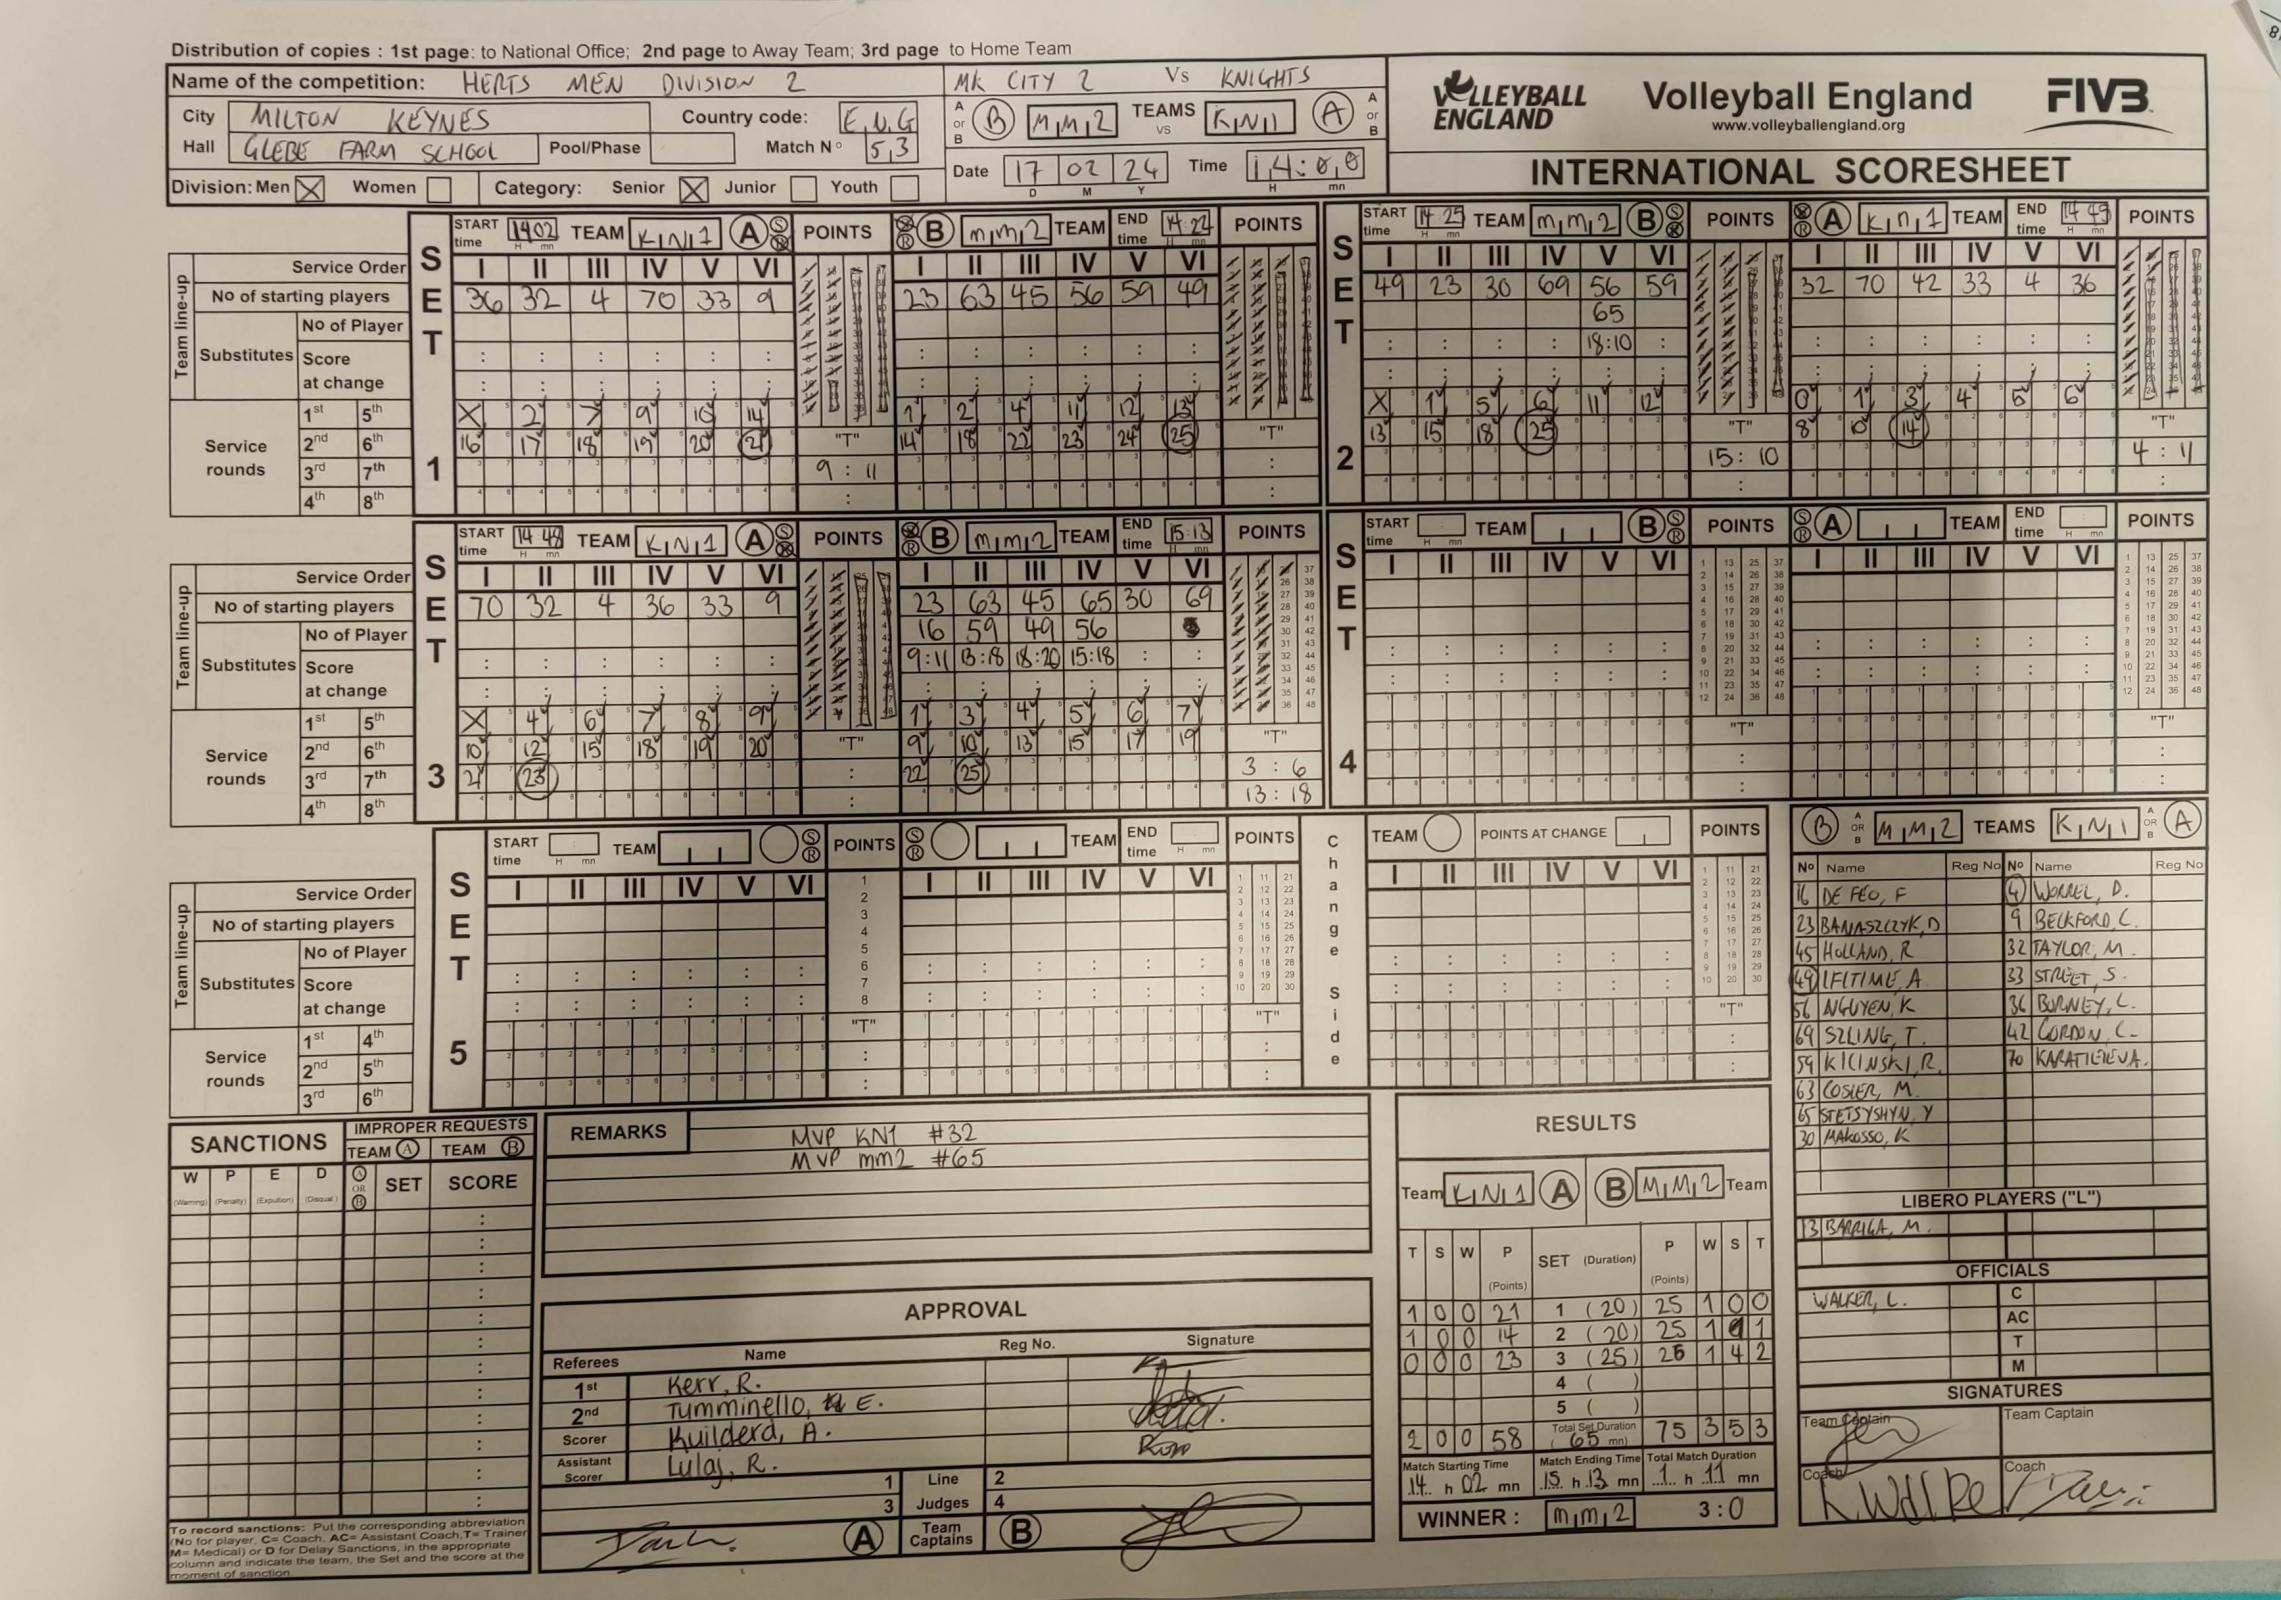 Distribution of copies : 1st page: to National Office; 2nd page to Away Team; 3rd page to Home Team
Name of the competition: HERTS MEN DIVISION 2
MK CITY 2 Vs KNIGHTS
City MILTON KEYNES Country code: E N G
Hall GLEBE FARM SCHOOL Pool/Phase Match N° 53
A or B B MM2 TEAMS vs KN1 A A or B
Date 17 02 24 Time 14:00
D M Y H mn
Division: Men X Women Category: Senior X Junior Youth
VOLLEYBALL ENGLAND
Volleyball England
www.volleyballengland.org
FIVB
INTERNATIONAL SCORESHEET
SET 1
START time 14 02 TEAM KN1 A S R POINTS
S R B MM2 TEAM END time 14:22 POINTS
Team line-up
Service Order I II III IV V VI I II III IV V VI
No of starting players 36 32 4 70 33 9 23 63 45 56 59 49
Substitutes No of Player
Score at change
Service rounds
1st 5th X 2 7 9 10 14 1 2 4 11 12 13
2nd 6th 16 17 18 19 20 21 14 18 22 23 24 25
3rd 7th
4th 8th
"T" 9 : 11
"T"
SET 2
START time 14 25 TEAM MM2 B S R POINTS
S R A KN1 TEAM END time 14 45 POINTS
I II III IV V VI I II III IV V VI
49 23 30 69 56 59 32 70 42 33 4 36
65
18:10
X 1 5 6 11 12 0 1 3 4 5 6
13 15 18 25 8 10 14
"T" 15 : 10
"T" 4 : 11
SET 3
START time 14 48 TEAM KN1 A S R POINTS
S R B MM2 TEAM END time 15:13 POINTS
Team line-up
Service Order I II III IV V VI I II III IV V VI
No of starting players 70 32 4 36 33 9 23 63 45 65 30 69
Substitutes No of Player 16 59 49 56
Score at change 9:11 13:18 18:20 15:18
Service rounds
1st 5th X 4 6 7 8 9 1 3 4 5 6 7
2nd 6th 10 12 15 18 19 20 9 10 13 15 17 19
3rd 7th 21 23 22 25
4th 8th
"T"
"T" 3 : 6
13 : 18
SET 4
START time TEAM B S R POINTS
S R A TEAM END time POINTS
I II III IV V VI I II III IV V VI
"T" "T"
SET 5
START time TEAM S R POINTS
S R TEAM END time POINTS
Change Side
TEAM POINTS AT CHANGE POINTS
Team line-up
Service Order I II III IV V VI I II III IV V VI I II III IV V VI
No of starting players
Substitutes No of Player
Score at change
Service rounds
1st 4th
2nd 5th
3rd 6th
"T" "T" "T"
B A OR B MM2 TEAMS KN1 A OR B A
N° Name Reg No N° Name Reg No
16 DE FEO, F 4 WORREL, D.
23 BANASZCZYK, D 9 BECKFORD, C.
45 HOLLAND, R 32 TAYLOR, M.
49 IFTIME, A 33 STREET, S.
56 NGUYEN, K 36 BURNEY, L.
69 SZLING, T. 42 GORDON, C.
59 KILINSKI, R. 70
63 COSIER, M.
65 STETSYSHYN, Y
30 MAKOSSO, K
LIBERO PLAYERS ("L")
13 BARRIGA, M.
OFFICIALS
WALKER, L. C
AC
T
M
SIGNATURES
Team Captain Team Captain
Coach Coach
SANCTIONS IMPROPER REQUESTS
TEAM A TEAM B
W P E D A OR B SET SCORE
(Warning) (Penalty) (Expulsion) (Disqual.)
To record sanctions: Put the corresponding abbreviation
(No for player, C= Coach, AC= Assistant Coach, T= Trainer
M= Medical) or D for Delay Sanctions, in the appropriate
column and indicate the team, the Set and the score at the
moment of sanction.
REMARKS
MVP KN1 #32
MVP MM2 #65
APPROVAL
Referees Name Reg No. Signature
1st Kerr, R.
2nd Tumminello, E.
Scorer Kuilderd, A.
Assistant Scorer Lulaj, R.
1 Line 2
3 Judges 4
A Team Captains B
RESULTS
Team KN1 A B MM2 Team
T S W P (Points) SET (Duration) P (Points) W S T
1 0 0 21 1 (20) 25 1 0 0
1 0 0 14 2 (20) 25 1 1 1
0 0 0 23 3 (25) 25 1 4 2
4 ( )
5 ( )
2 0 0 58 Total Set Duration (65 mn) 75 3 5 3
Match Starting Time 14 h 02 mn
Match Ending Time 15 h 13 mn
Total Match Duration 1 h 11 mn
WINNER : MM2 3:0